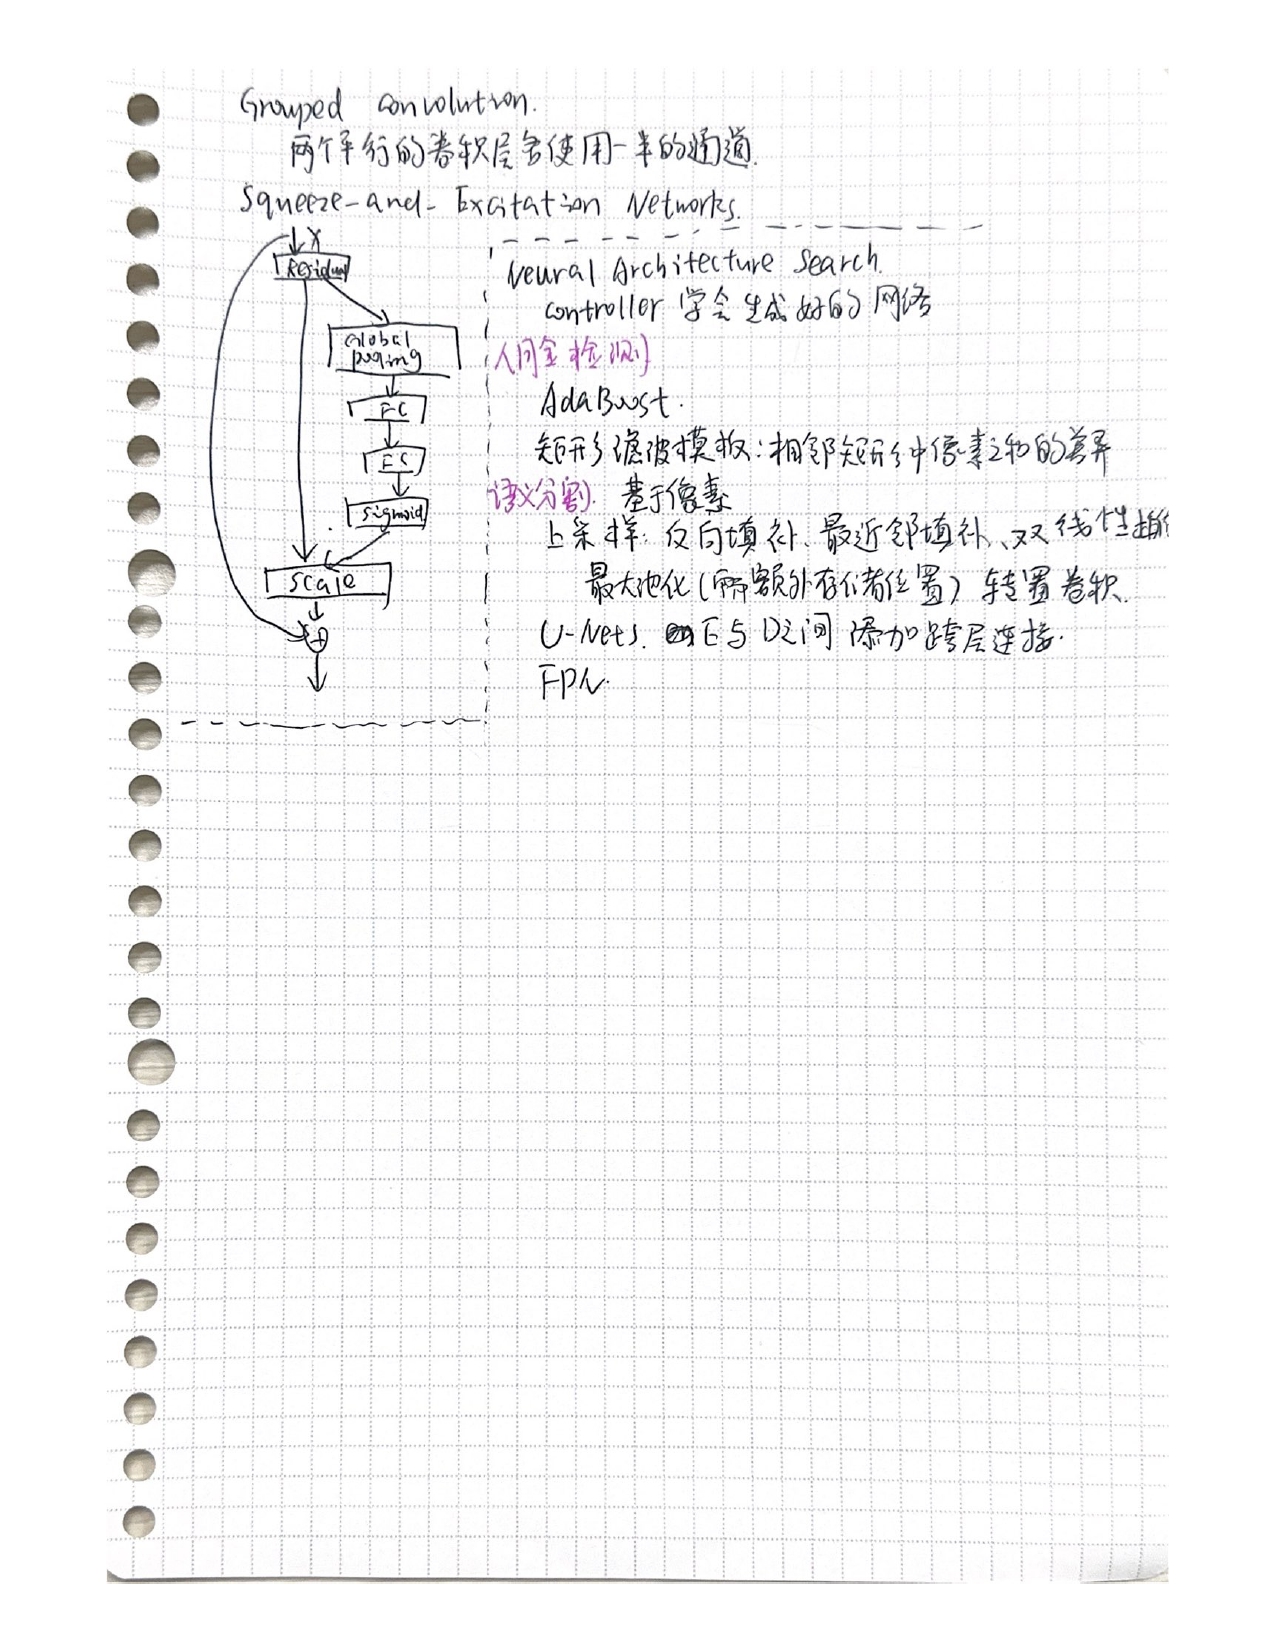 Grouped convolution.
两个平行的卷积层各使用一半的通道.
Squeeze-and-Excitation Networks.
X
Residual
Global
pooling
FC
FC
Sigmoid
Scale
+
Neural Architecture Search.
controller 学会生成好的网络
检测
AdaBoost.
矩形滤波模板:相邻矩形中像素之和的差异
语义分割. 基于像素
上采样: 反向填补、最近邻填补、双线性插值
最大池化(需额外存储位置) 转置卷积.
U-Nets. E与D之间添加跨层连接.
FPN.